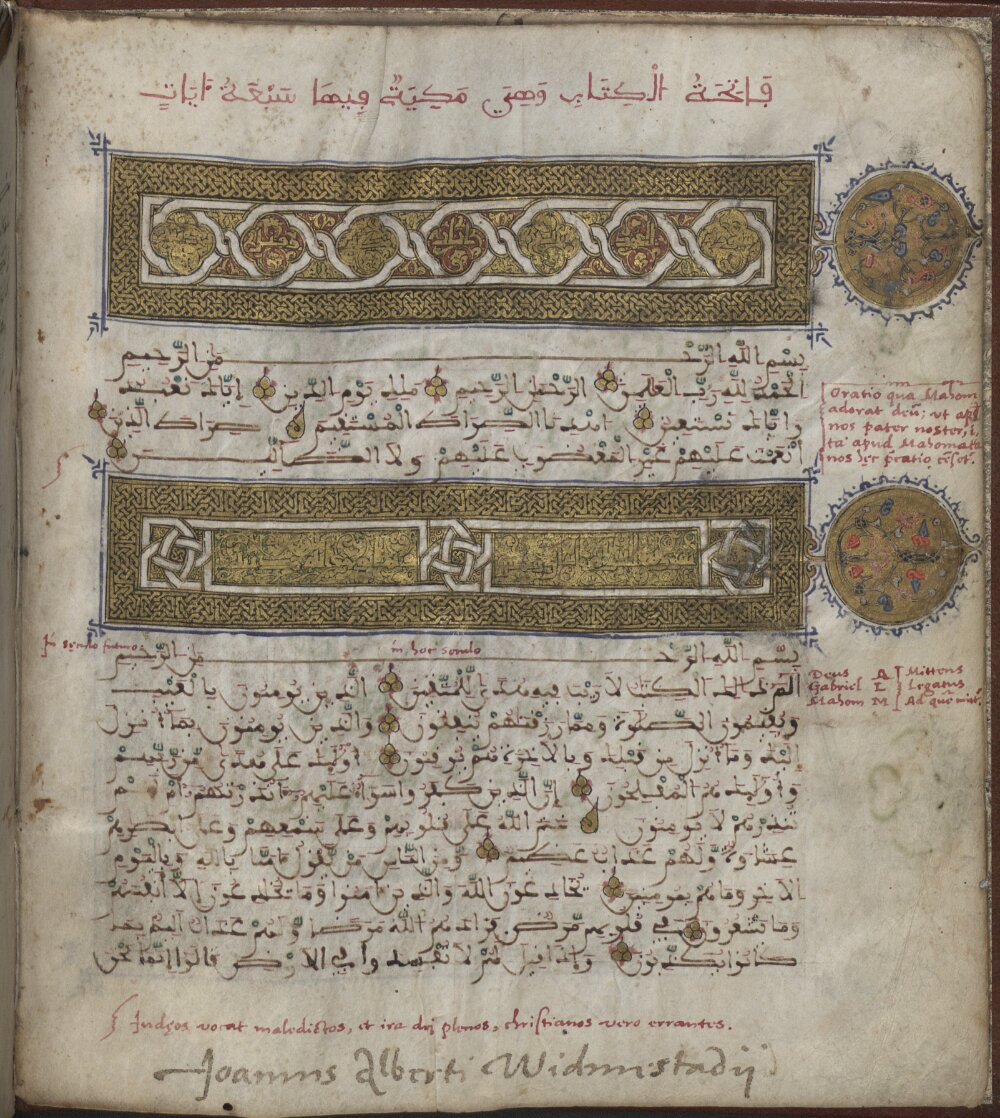 فَاتِحَةُ الْكِتَابِ وَهِيَ مَكِّيَّةٌ فِيهَا سَبْعَةُ ءَايَاتٍ
بِسْمِ اللَّهِ الرَّحْمَٰنِ الرَّحِيمِ
الْحَمْدُ لِلَّهِ رَبِّ الْعَٰلَمِينَ الرَّحْمَٰنِ الرَّحِيمِ مَلِكِ يَوْمِ الدِّينِ إِيَّاكَ نَعْبُدُ
وَإِيَّاكَ نَسْتَعِينُ اهْدِنَا الصِّرَاطَ الْمُسْتَقِيمَ صِرَاطَ الَّذِينَ
أَنْعَمْتَ عَلَيْهِمْ غَيْرِ الْمَغْضُوبِ عَلَيْهِمْ وَلَا الضَّالِّينَ
Oratio qua Mahom
adorat deū; ut apđ
nos pater noster, i
ta apud Mahometa
nos hęc p̄catio
In sęculo futuro
in hoc seculo
بِسْمِ اللَّهِ الرَّحْمَٰنِ الرَّحِيمِ
الٓمٓ ذَٰلِكَ الْكِتَٰبُ لَا رَيْبَ فِيهِ هُدًى لِّلْمُتَّقِينَ الَّذِينَ يُومِنُونَ بِالْغَيْبِ
وَيُقِيمُونَ الصَّلَوٰةَ وَمِمَّا رَزَقْنَٰهُمْ يُنفِقُونَ وَالَّذِينَ يُومِنُونَ بِمَا أُنزِلَ
إِلَيْكَ وَمَا أُنزِلَ مِن قَبْلِكَ وَبِالْأَخِرَةِ هُمْ يُوقِنُونَ أُوْلَٰئِكَ عَلَىٰ هُدًى مِّن رَّبِّهِمْ
وَأُوْلَٰئِكَ هُمُ الْمُفْلِحُونَ إِنَّ الَّذِينَ كَفَرُوا سَوَاءٌ عَلَيْهِمْ ءَانذَرْتَهُمْ أَمْ لَمْ
تُنذِرْهُمْ لَا يُومِنُونَ خَتَمَ اللَّهُ عَلَىٰ قُلُوبِهِمْ وَعَلَىٰ سَمْعِهِمْ وَعَلَىٰ أَبْصَٰرِهِمْ
غِشَٰوَةٌ وَلَهُمْ عَذَابٌ عَظِيمٌ وَمِنَ النَّاسِ مَن يَقُولُ ءَامَنَّا بِاللَّهِ وَبِالْيَوْمِ
الْأَخِرِ وَمَا هُم بِمُومِنِينَ يُخَٰدِعُونَ اللَّهَ وَالَّذِينَ ءَامَنُوا وَمَا يُخَٰدِعُونَ إِلَّا أَنفُسَهُمْ
وَمَا يَشْعُرُونَ فِي قُلُوبِهِم مَّرَضٌ فَزَادَهُمُ اللَّهُ مَرَضًا وَلَهُمْ عَذَابٌ أَلِيمٌ بِمَا
كَانُوا يُكَذِّبُونَ وَإِذَا قِيلَ لَهُمْ لَا تُفْسِدُوا فِي الْأَرْضِ قَالُوا إِنَّمَا نَحْنُ
Deus A Mittens
Gabriel L Legatus
Mahom M Ad quē
Judęos vocat maledictos, et ira dei plenos, christianos vero errantes.
Joannis Alberti Widmestadij